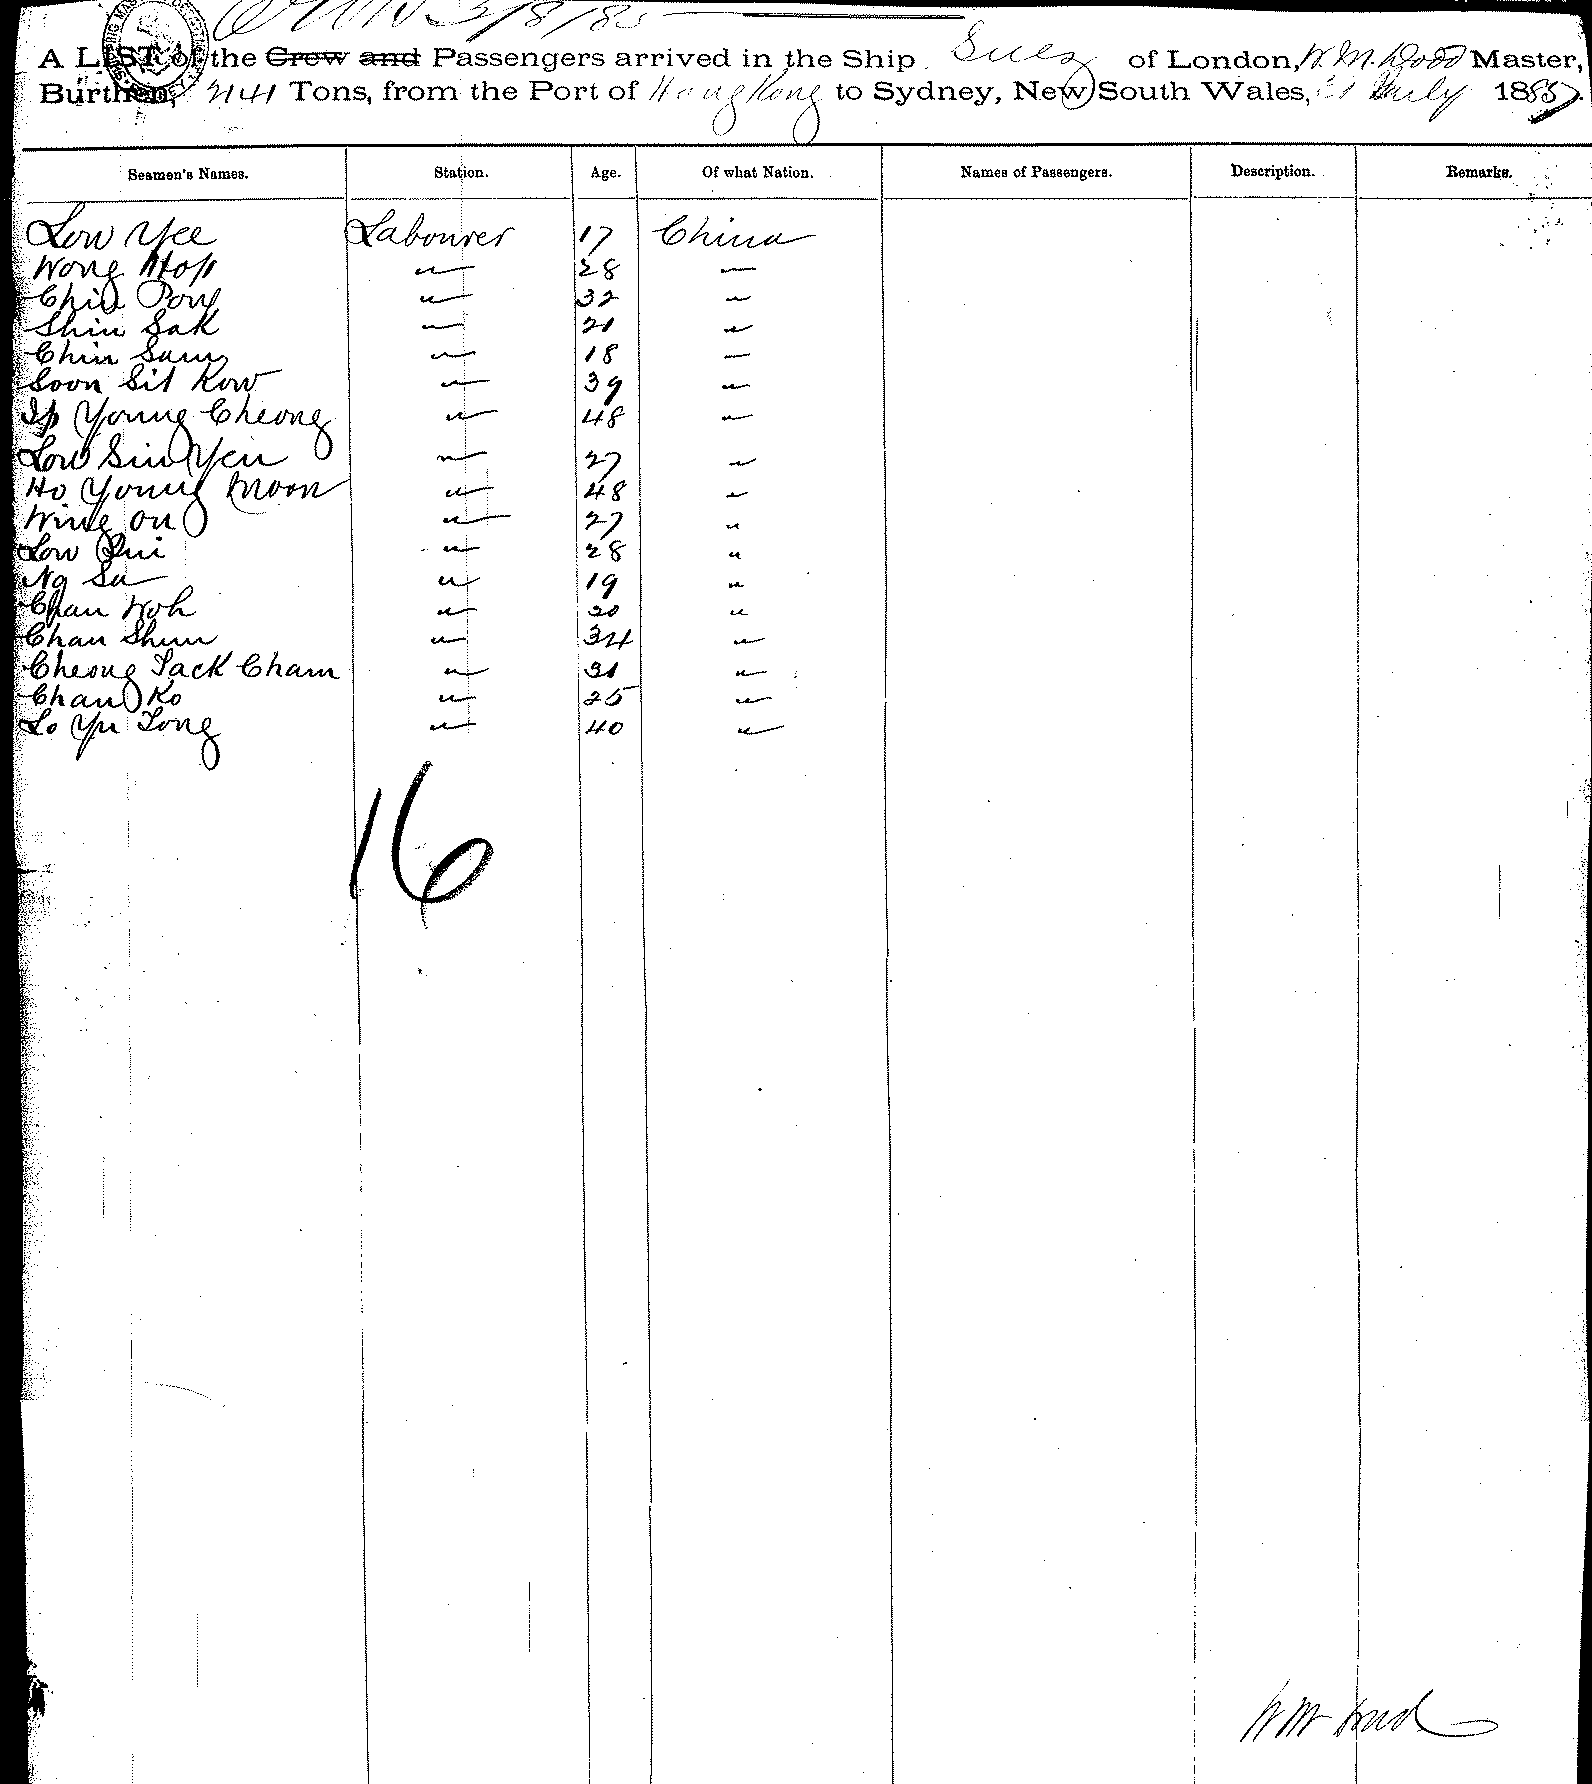 3/8/85
A LIST of the Crew and Passengers arrived in the Ship Suez of London, W. M. Dodd Master,
Burthen, 2141 Tons, from the Port of Hong Kong to Sydney, New South Wales, 31 July 1885.
Seamen's Names. Station. Age. Of what Nation. Names of Passengers. Description. Remarks.
Low Yee Labourer 17 China
Wong Hop " 28 "
Chin Pong " 32 "
Shin Sak " 21 "
Chin Sam " 18 "
Soon Sit Kow " 39 "
Ip Young Cheong " 48 "
Low Sin Yen " 27 "
Ho Young Moon " 48 "
Wing On " 27 "
Low " 28 "
Ng Su " 19 "
Chan Woh " 20 "
Chan Shun " 34 "
Cheong Tack Cham " 31 "
Chan Ko " 25 "
Lo Yu Tong " 40 "
16